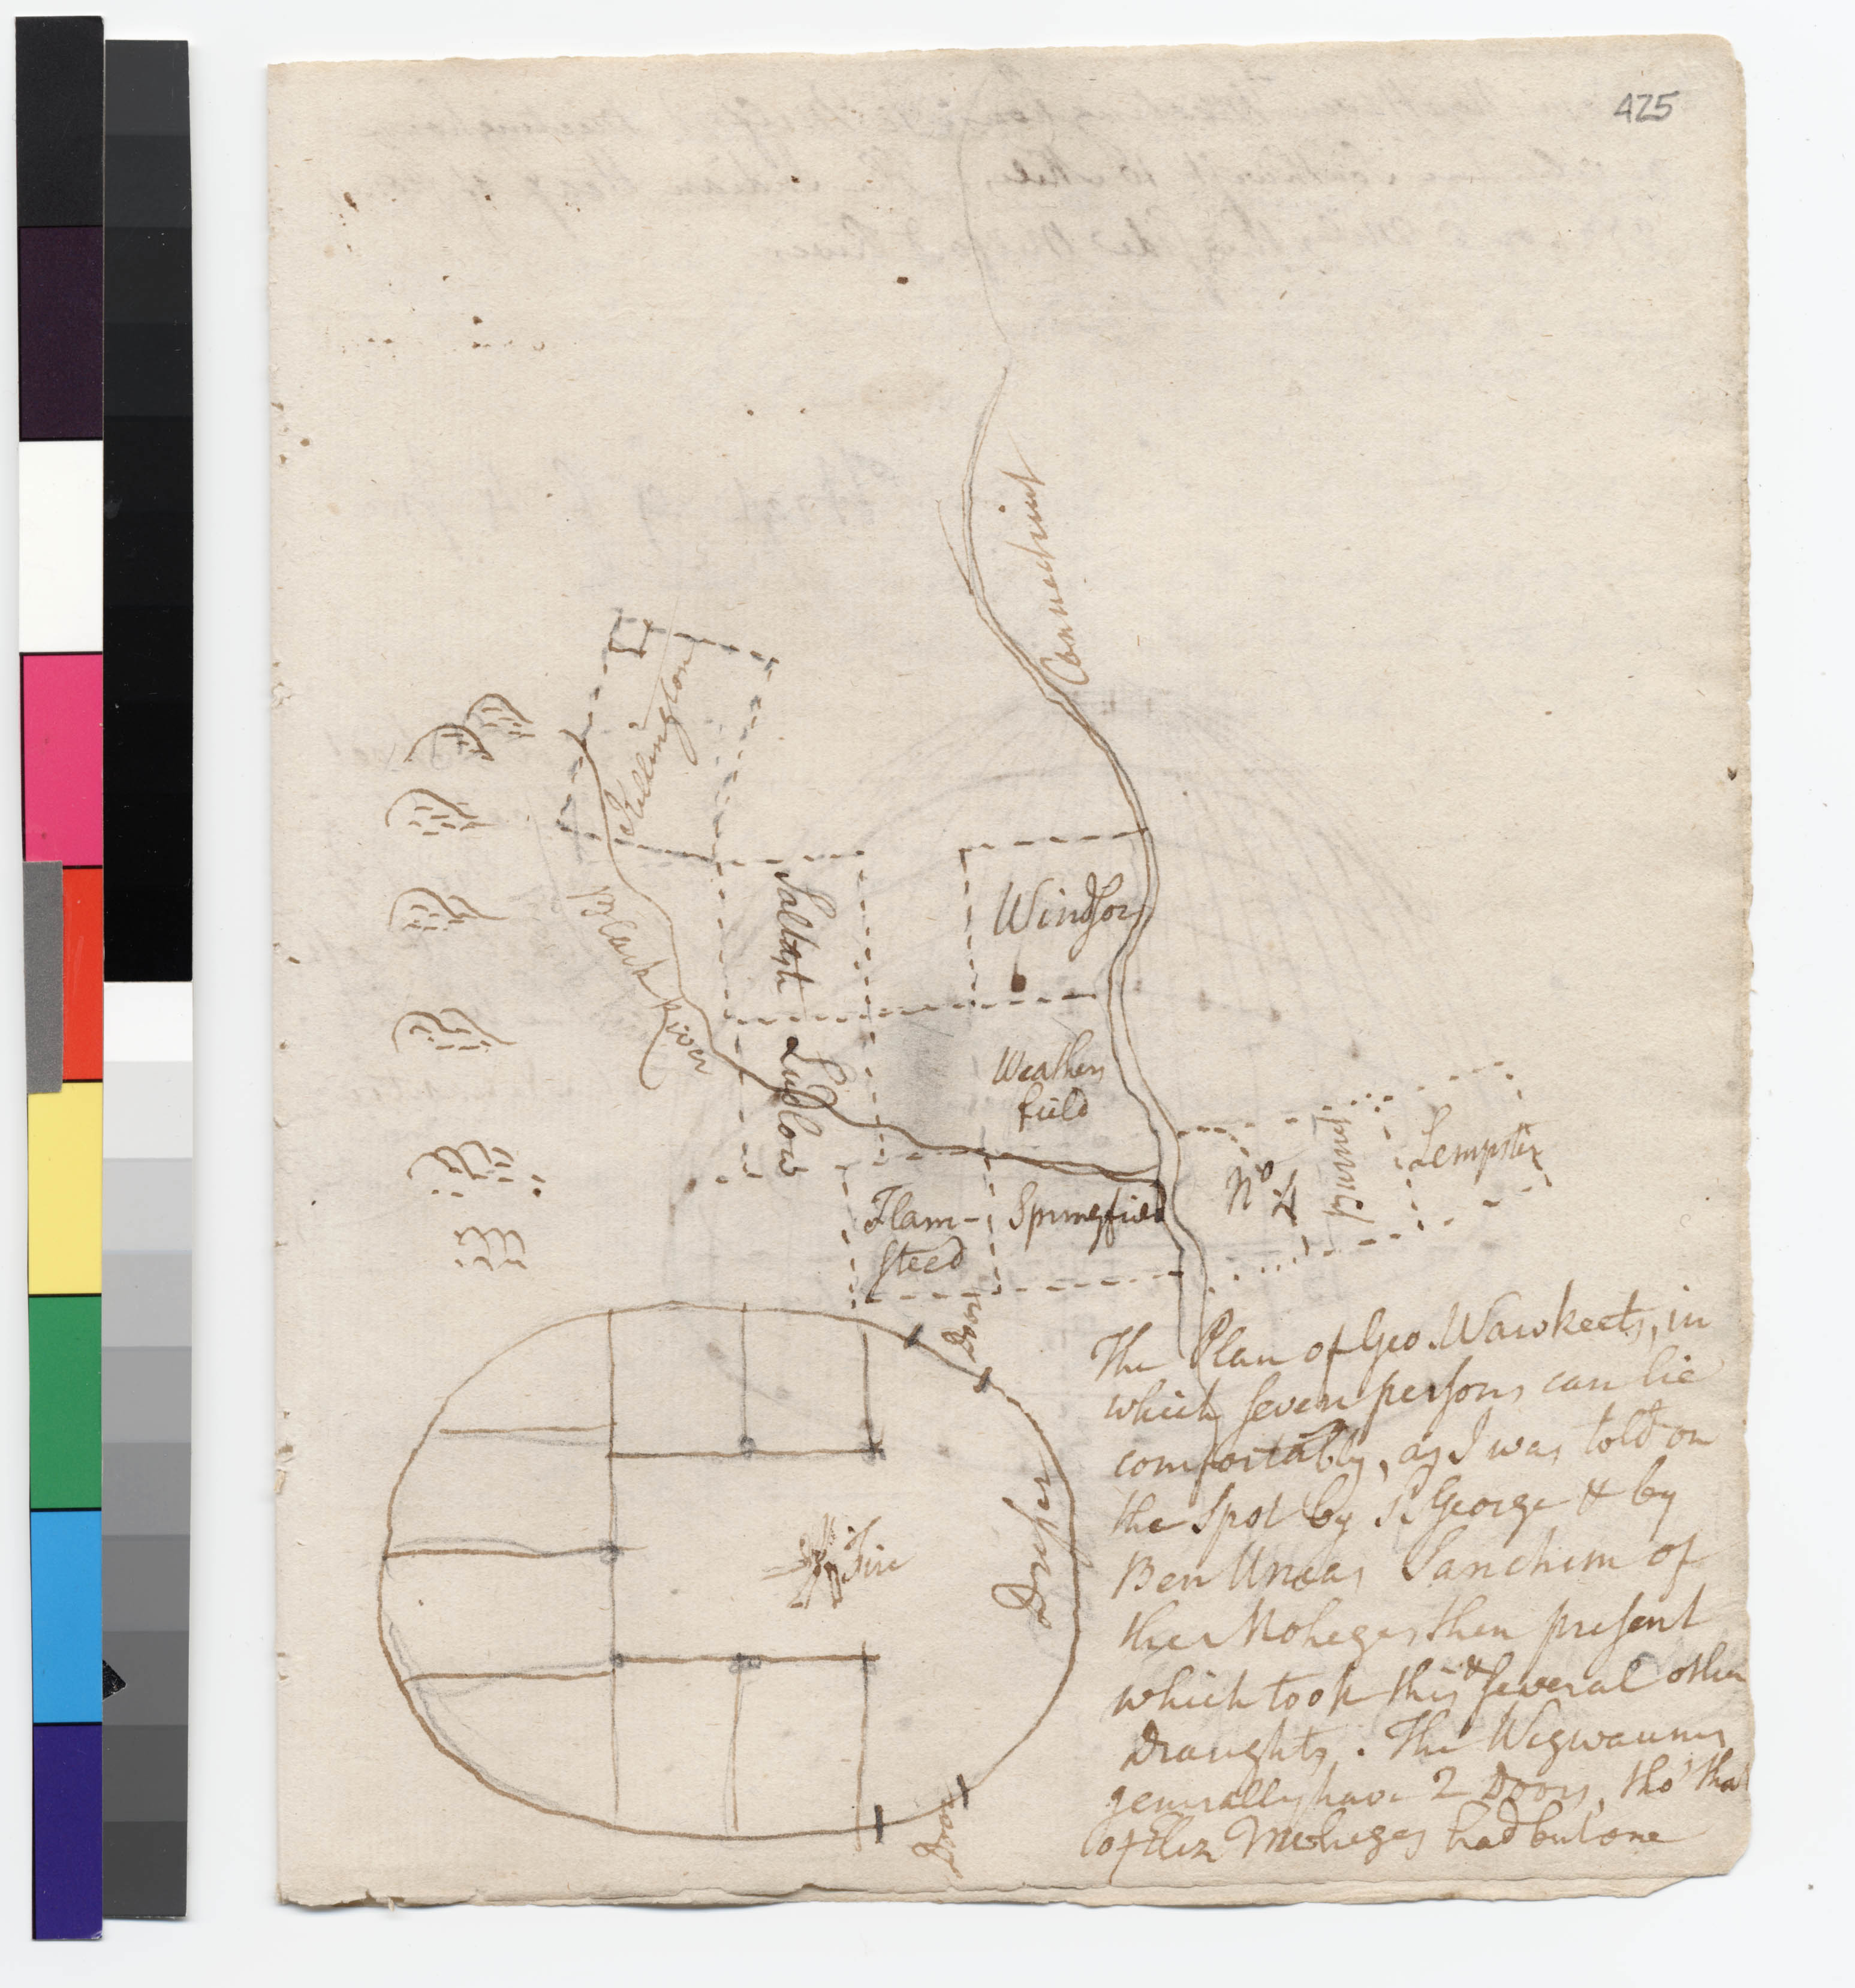 425
Connecticut
Killington
Black River
Saltash
Windsor
Ludlow
Weathers
field
No 4
Lempster
Flam-
steed
Springfield
Door
Dresser
Fire
Door
The Plan of Geo. Wawkeets, in
which seven persons can lie
comfortably, as I was told on
the Spot by sd George & by
Ben Uncas Sanchem of
the Moheges then present
which took this & several other
Draughts. The Wegwaums
generally have 2 Doors, tho' that
of the Moheges had but one